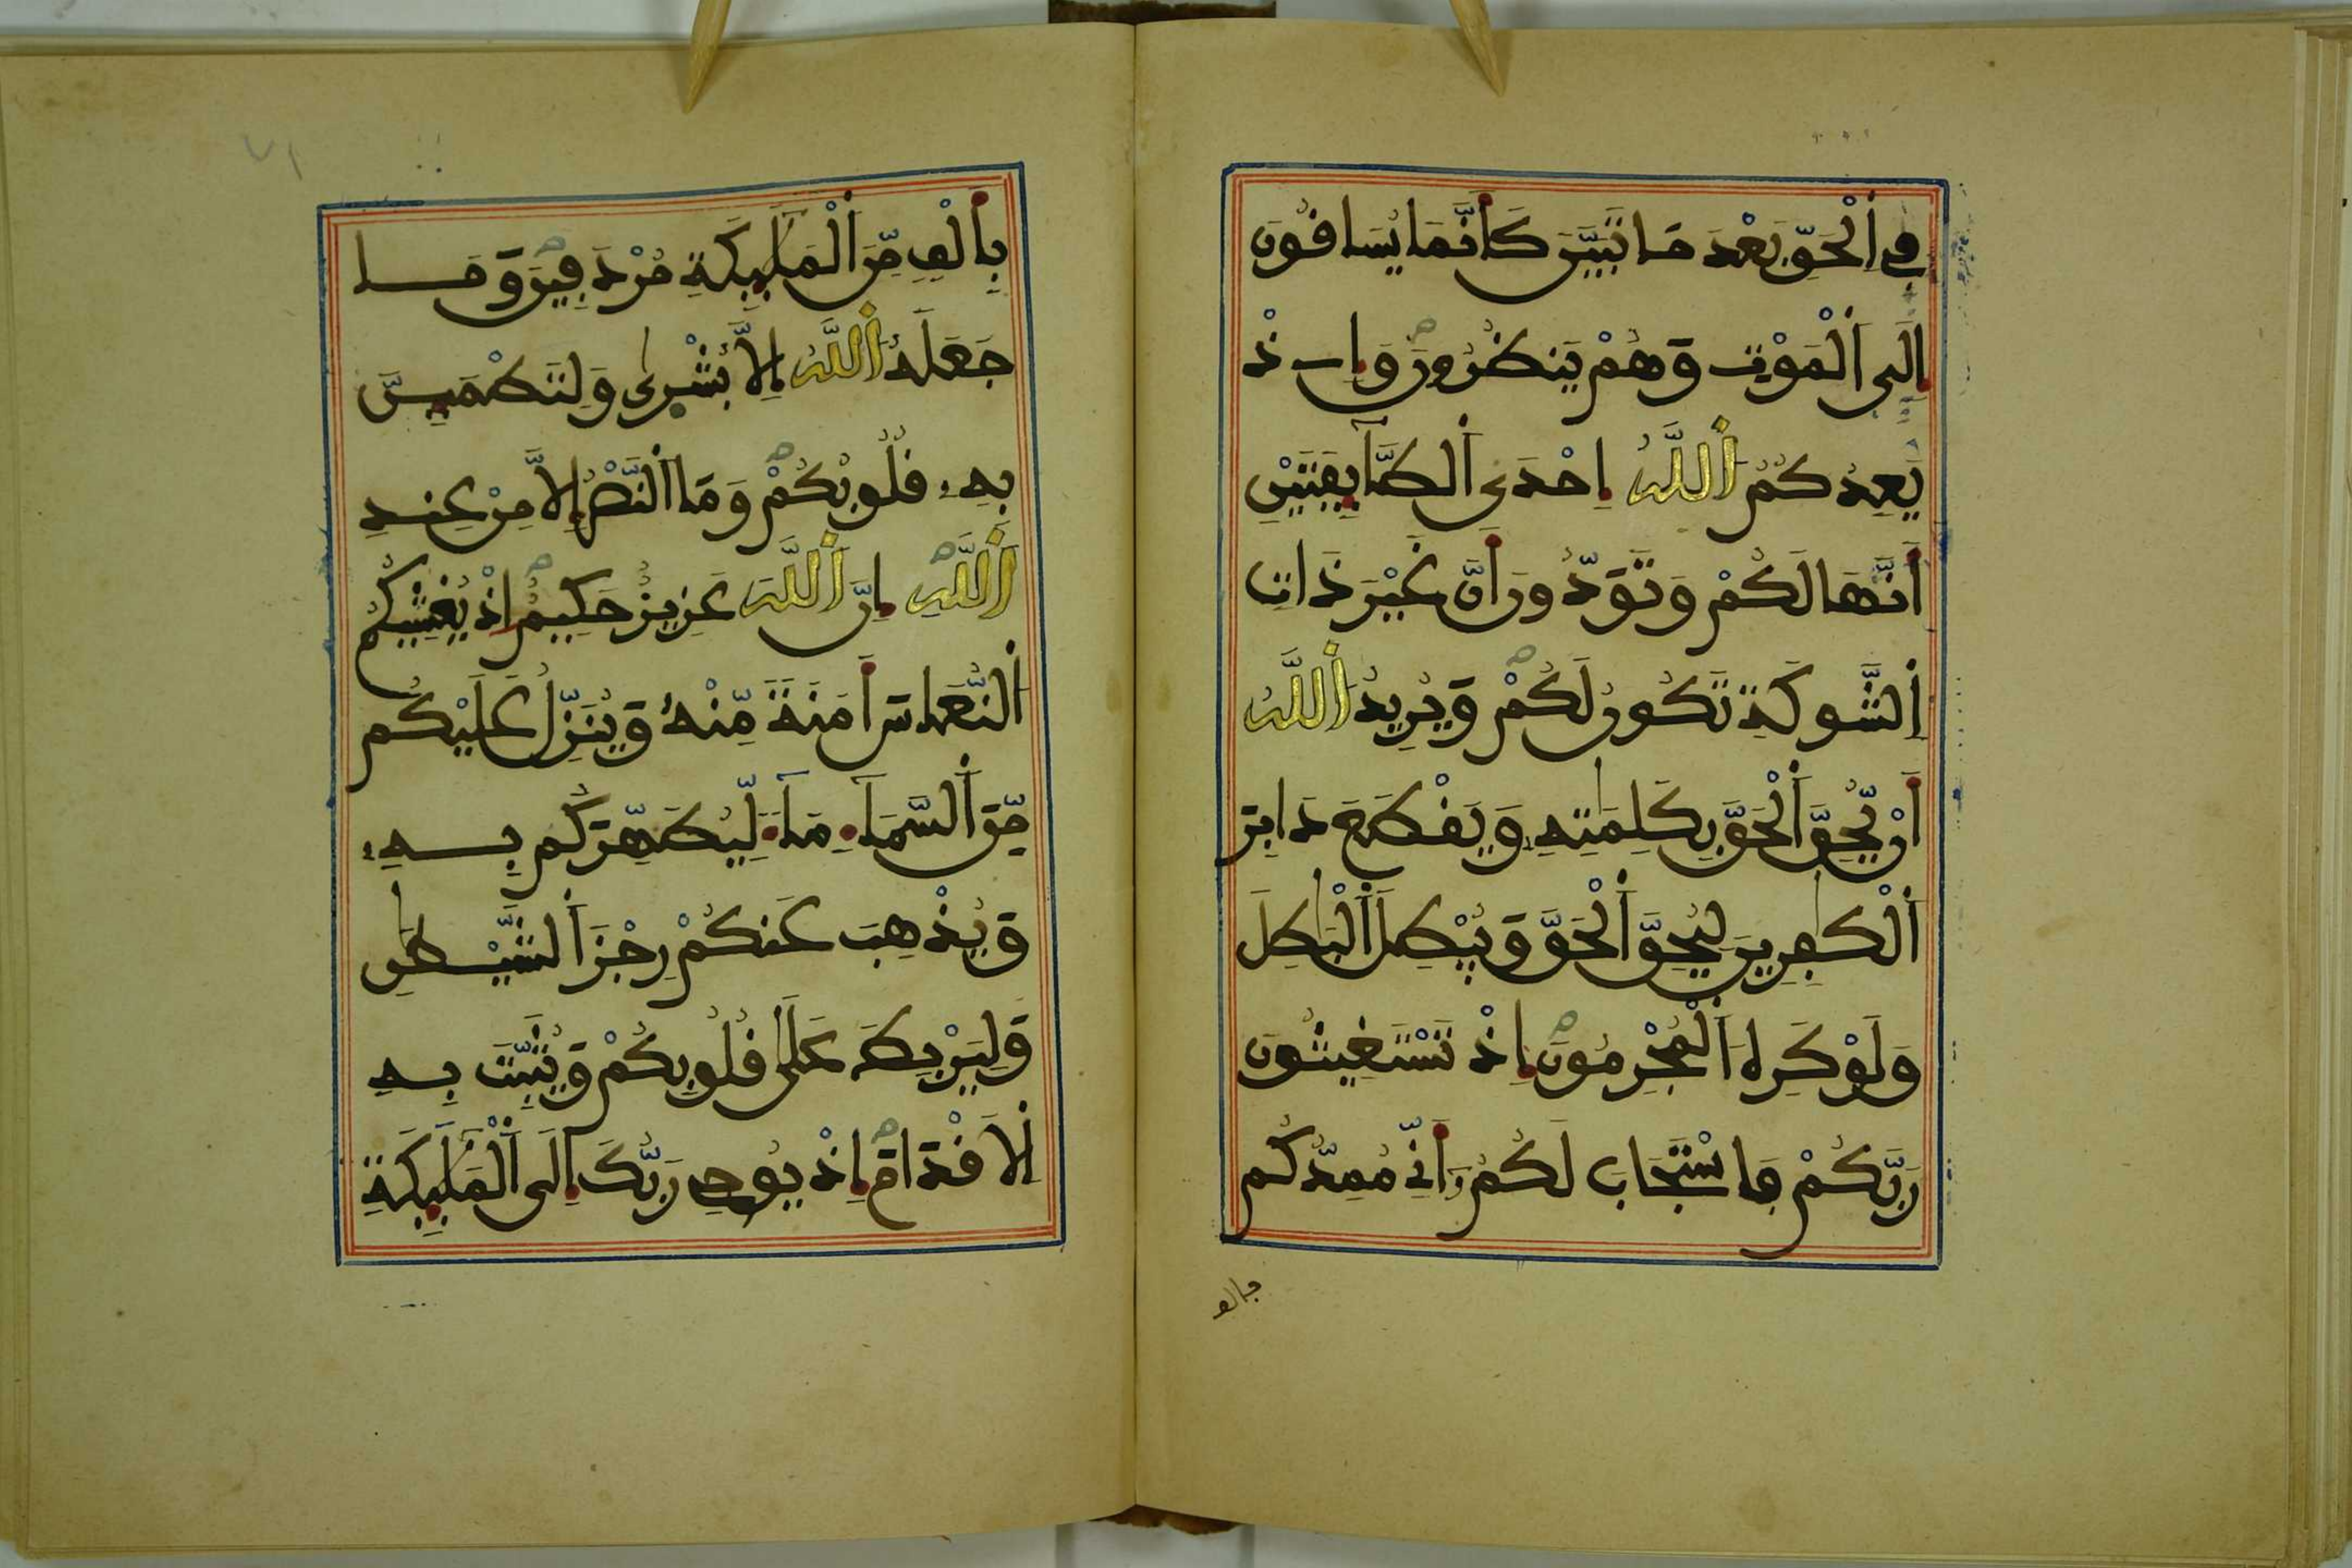 فِي اِ۬لْحَقِّ بَعْدَ مَا تَبَيَّنَ كَأَنَّمَا يُسَاقُونَ
إِلَى اَ۬لْمَوْتِ وَهُمْ يَنظُرُونَ وَإِذْ
يَعِدُكُمُ اُ۬للَّهُ إِحْدَى اَ۬لطَّآئِفَتَيْنِ
أَنَّهَا لَكُمْ وَتَوَدُّونَ أَنَّ غَيْرَ ذَاتِ
اِ۬لشَّوْكَةِ تَكُونُ لَكُمْ وَيُرِيدُ اُ۬للَّهُ
أَنْ يُّحِقَّ اَ۬لْحَقَّ بِكَلِمَٰتِهِۦ وَيَقْطَعَ دَابِرَ
اَ۬لْكَٰفِرِينَ لِيُحِقَّ اَ۬لْحَقَّ وَيُبْطِلَ اَ۬لْبَٰطِلَ
وَلَوْ كَرِهَ اَ۬لْمُجْرِمُونَ إِذْ تَسْتَغِيثُونَ
رَبَّكُمْ فَاسْتَجَابَ لَكُمْ أَنِّي مُمِدُّكُم
بألف
بِأَلْفٍ مِّنَ اَ۬لْمَلَٰٓئِكَةِ مُرْدَفِينَ وَمَا
جَعَلَهُ اُ۬للَّهُ إِلَّا بُشْر۪ىٰ وَلِتَطْمَئِنَّ
بِهِۦ قُلُوبُكُمْ وَمَا اَ۬لنَّصْرُ إِلَّا مِنْ عِندِ
اِ۬للَّهِ إِنَّ اَ۬للَّهَ عَزِيزٌ حَكِيمٌ إِذْ يُغْشِيكُمُ
اُ۬لنُّعَاسَ أَمَنَةً مِّنْهُ وَيُنَزِّلُ عَلَيْكُم
مِّنَ اَ۬لسَّمَآءِ مَآءً لِّيُطَهِّرَكُم بِهِۦ
وَيُذْهِبَ عَنكُمْ رِجْزَ اَ۬لشَّيْطَٰنِ
وَلِيَرْبِطَ عَلَىٰ قُلُوبِكُمْ وَيُثَبِّتَ بِهِ
اِ۬لَاقْدَامَ إِذْ يُوحِي رَبُّكَ إِلَى اَ۬لْمَلَٰٓئِكَةِ